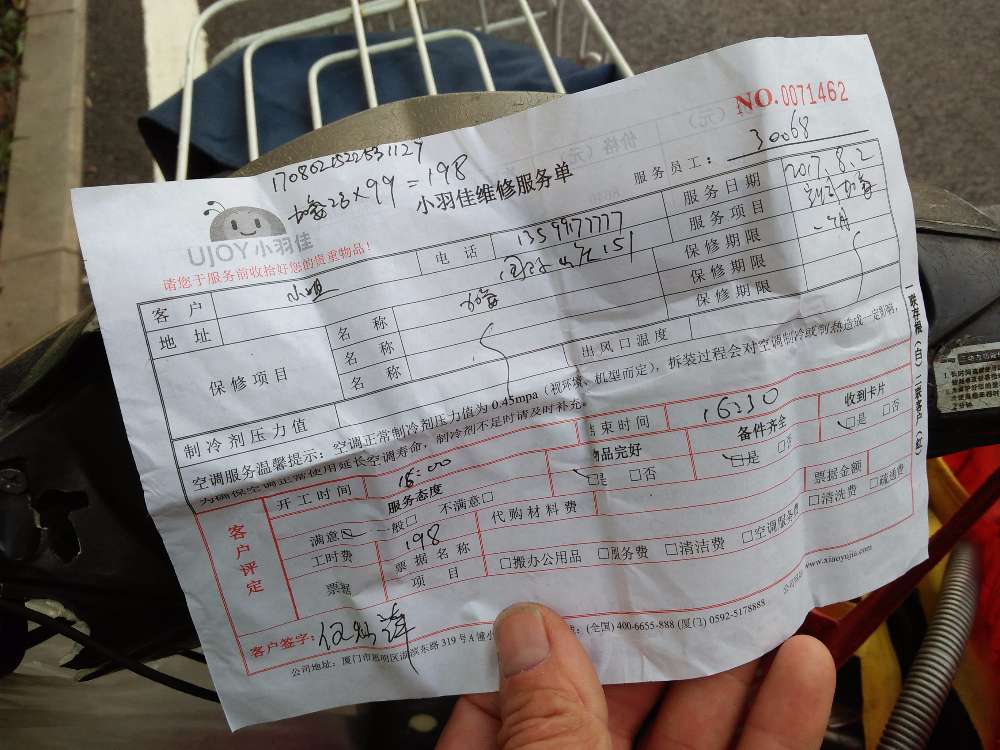 NO.0071462
1708021522531127
30068
×99=198
小羽佳维修服务单
服务员工：
UJOY小羽佳
请您于服务前收拾好您的贵重物品！
客户 小姐 电话 13599177777 服务日期 2017.8.2
地址 服务项目
保修项目 名称 保修期限 一个月
名称 保修期限
名称 保修期限
制冷剂压力值 出风口温度
空调服务温馨提示：空调正常制冷剂压力值为0.45mpa（视环境、机型而定），拆装过程会对空调制冷或制热造成一定影响，
为确保空调正常使用延长空调寿命，制冷剂不足时请及时补充。
一联存根（白）二联客户（红）
客户评定
开工时间 16:00 结束时间 16:30 收到卡片
服务态度 物品完好 备件齐全 □是 □否
满意□ 一般□ 不满意□ □是 □否 □是 □否
工时费 198 代购材料费 票据金额
票据 票据名称
项目 □搬办公用品 □服务费 □清洁费 □空调服务费 □清洗费 □疏通费
客户签字：
www.xiaoyujia.com
(全国) 400-6655-888 (厦门) 0592-5178888
公司地址：厦门市思明区湖滨东路319号A幢小